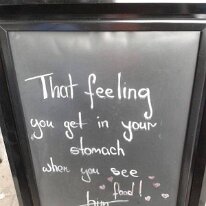 That feeling
you get in your
stomach
when you see
food!